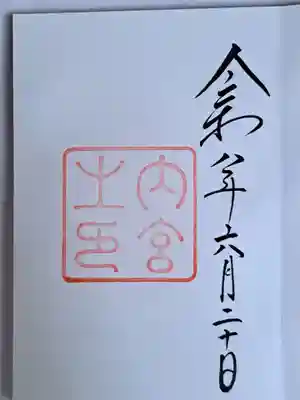 令和八年六月二十日
内宮
之印